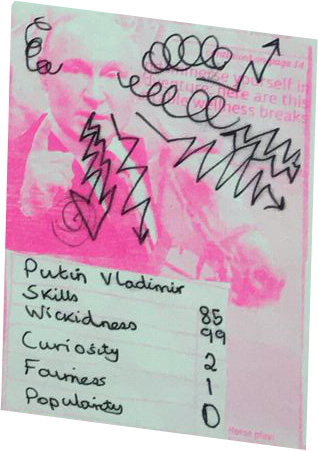 on page 14
immerse yourself in
here are this
wellness breaks
Putin Vladimir
Skills 85
Wickidness 99
Curiosity 2
Fairness 1
Popularity 0